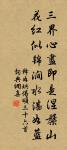 三界心盡即是涅槃山
花紅似錦澗水湛如藍
三十六首